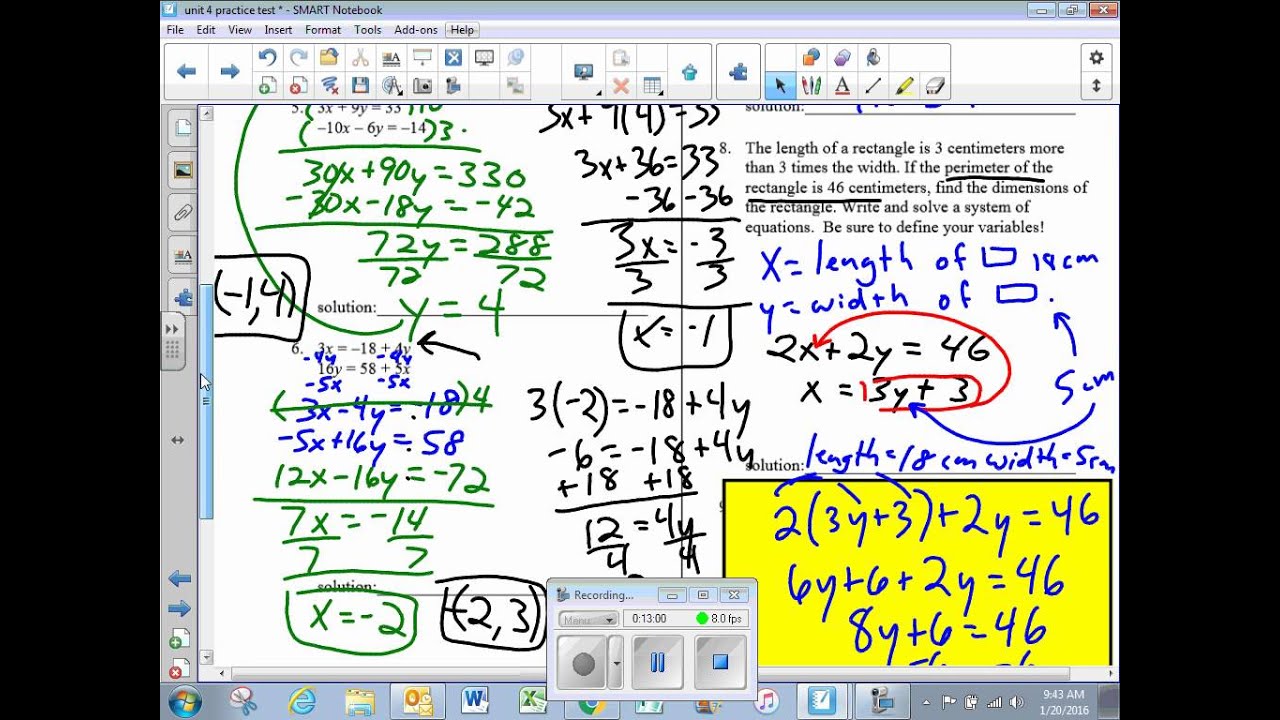 unit 4 practice test * - SMART Notebook
File Edit View Insert Format Tools Add-ons Help
5. 3x + 9y = 33 )10
( -10x - 6y = -14 )3.
30x+90y=330
-30x-18y=-42
72y = 288
72 72
(-1,4)
solution: y = 4
6. 3x = -18 + 4y
-4y -4y
16y = 58 + 5x
-5x -5x
( 3x-4y=-18)4
-5x+16y=58
12x-16y=-72
7x = -14
7 7
solution:
x=-2
(-2,3)
3x+9(4)=33
3x+36=33
-36 -36
3x = -3
3 3
x = -1
3(-2)=-18+4y
-6=-18+4y
+18 +18
12 = 4y
4 4
solution:
8. The length of a rectangle is 3 centimeters more
than 3 times the width. If the perimeter of the
rectangle is 46 centimeters, find the dimensions of
the rectangle. Write and solve a system of
equations. Be sure to define your variables!
x = length of 18cm
y = width of .
2x+2y = 46
x = 13y + 3
5cm
solution: length=18 cm width=5cm
2(3y+3)+2y=46
6y+6+2y=46
8y+6=46
Recording...
Menu 0:13:00 8.0 fps
9:43 AM
1/20/2016